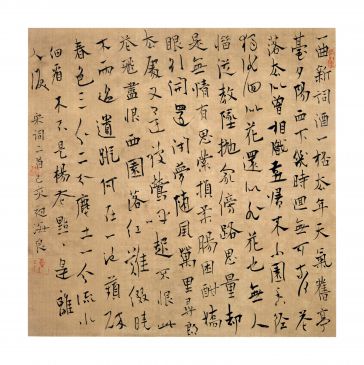 一曲新詞酒一杯去年天氣舊亭
臺夕陽西下幾時迴無可奈何花
落去似曾相識燕歸來小園香徑
獨徘徊似花還似非花也無人
惜從教墜拋家傍路思量却
是無情有思縈損柔腸困酣嬌
眼欲開還閉夢隨風萬里尋郎
去處又還被鶯呼起不恨此
花飛盡恨西園落紅難綴曉
來雨過遺蹤何在一池萍碎
春色三分二分塵土一分流水
細看來不是楊花點點是離
人淚 宋詞二首己亥海良